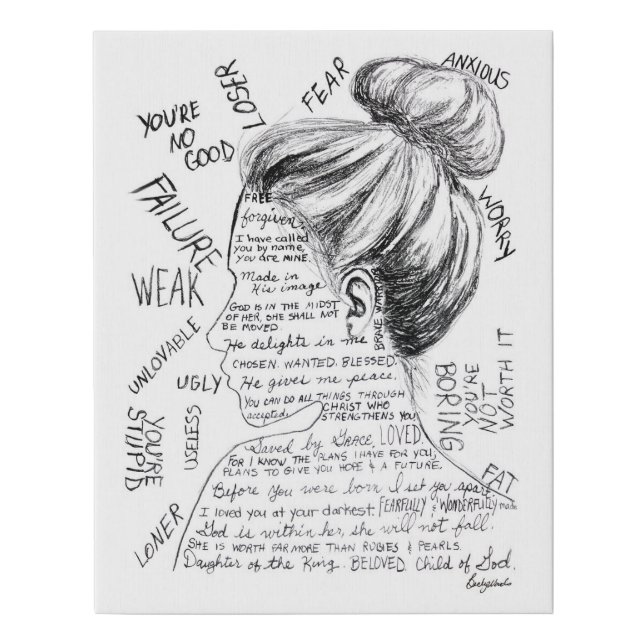 LOSER
FEAR
ANXIOUS
YOU'RE
NO
GOOD
FAILURE
WORRY
WEAK
UNLOVABLE
UGLY
USELESS
YOU'RE
STUPID
LONER
BORING
YOU'RE
NOT
WORTH IT
FAT
FREE
forgiven.
I have called
you by name,
you are MINE.
Made in
His image
GOD IS IN THE MIDST
OF HER, SHE SHALL NOT
BE MOVED.
BRAVE WARRIOR
He delights in me
CHOSEN. WANTED. BLESSED.
He gives me peace.
YOU CAN DO ALL THINGS THROUGH
accepted. CHRIST WHO
STRENGTHENS YOU
Saved by GRACE, LOVED.
FOR I KNOW THE PLANS I HAVE FOR YOU,
PLANS TO GIVE YOU HOPE & A FUTURE.
Before You were born I set you apart.
I loved you at your darkest. FEARFULLY & WONDERFULLY made
God is within her, she will not fall.
SHE IS WORTH FAR MORE THAN RUBIES & PEARLS.
Daughter of the King. BELOVED. Child of God.